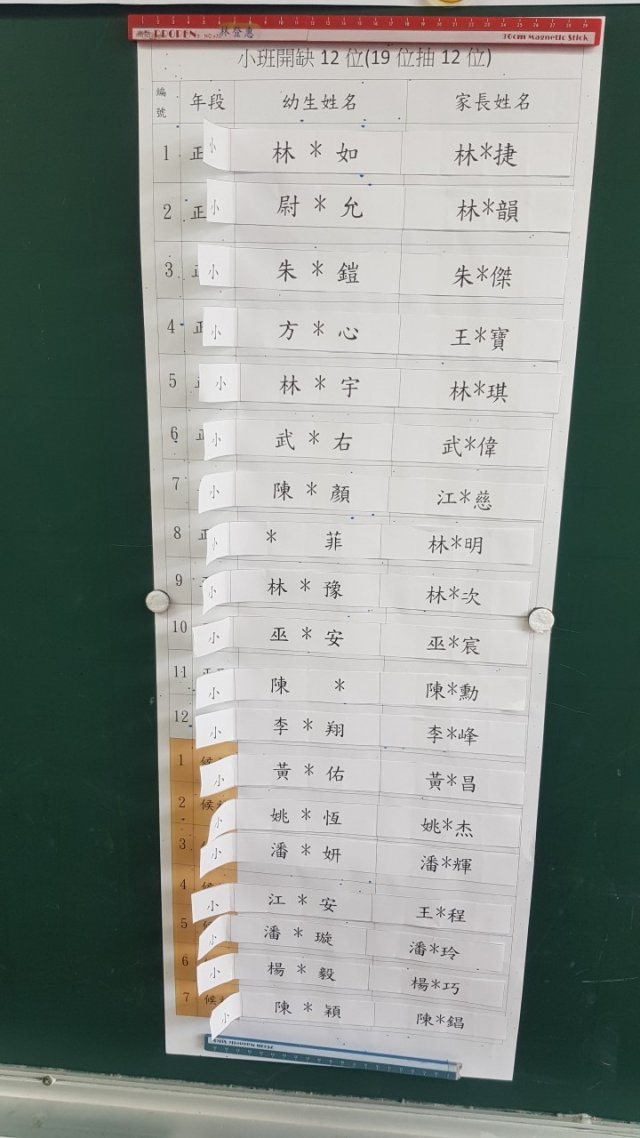 林登惠
30cm Magnetic Stick
小班開缺12位(19位抽12位)
編號 年段 幼生姓名 家長姓名
1 正 小 林*如 林*捷
2 正 小 尉*允 林*韻
3 正 小 朱*鎧 朱*傑
4 正 小 方*心 王*寶
5 正 小 林*宇 林*琪
6 正 小 武*右 武*偉
7 正 小 陳*顏 江*慈
8 正 小 * 菲 林*明
9 正 小 林*豫 林*次
10 小 巫*安 巫*宸
11 正取 小 陳 * 陳*勳
12 小 李*翔 李*峰
1 候 小 黃*佑 黃*昌
2 候 小 姚*恆 姚*杰
3 小 潘*妍 潘*輝
4 候 小 江*安 王*程
5 小 潘*璇 潘*玲
6 小 楊*毅 楊*巧
7 候 小 陳*穎 陳*錩